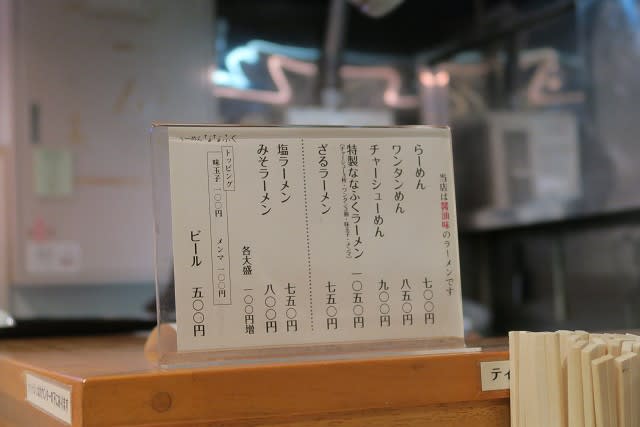 らーめん ななふく
当店は醤油味のラーメンです
らーめん 七〇〇円
ワンタンめん 八五〇円
チャーシューめん 九〇〇円
特製ななふくラーメン 一〇五〇円
ざるラーメン 七五〇円
塩ラーメン 七五〇円
みそラーメン 八〇〇円
各大盛 一〇〇円増
トッピング
味玉子 一〇〇円 メンマ 一〇〇円
ビール 五〇〇円
ティ